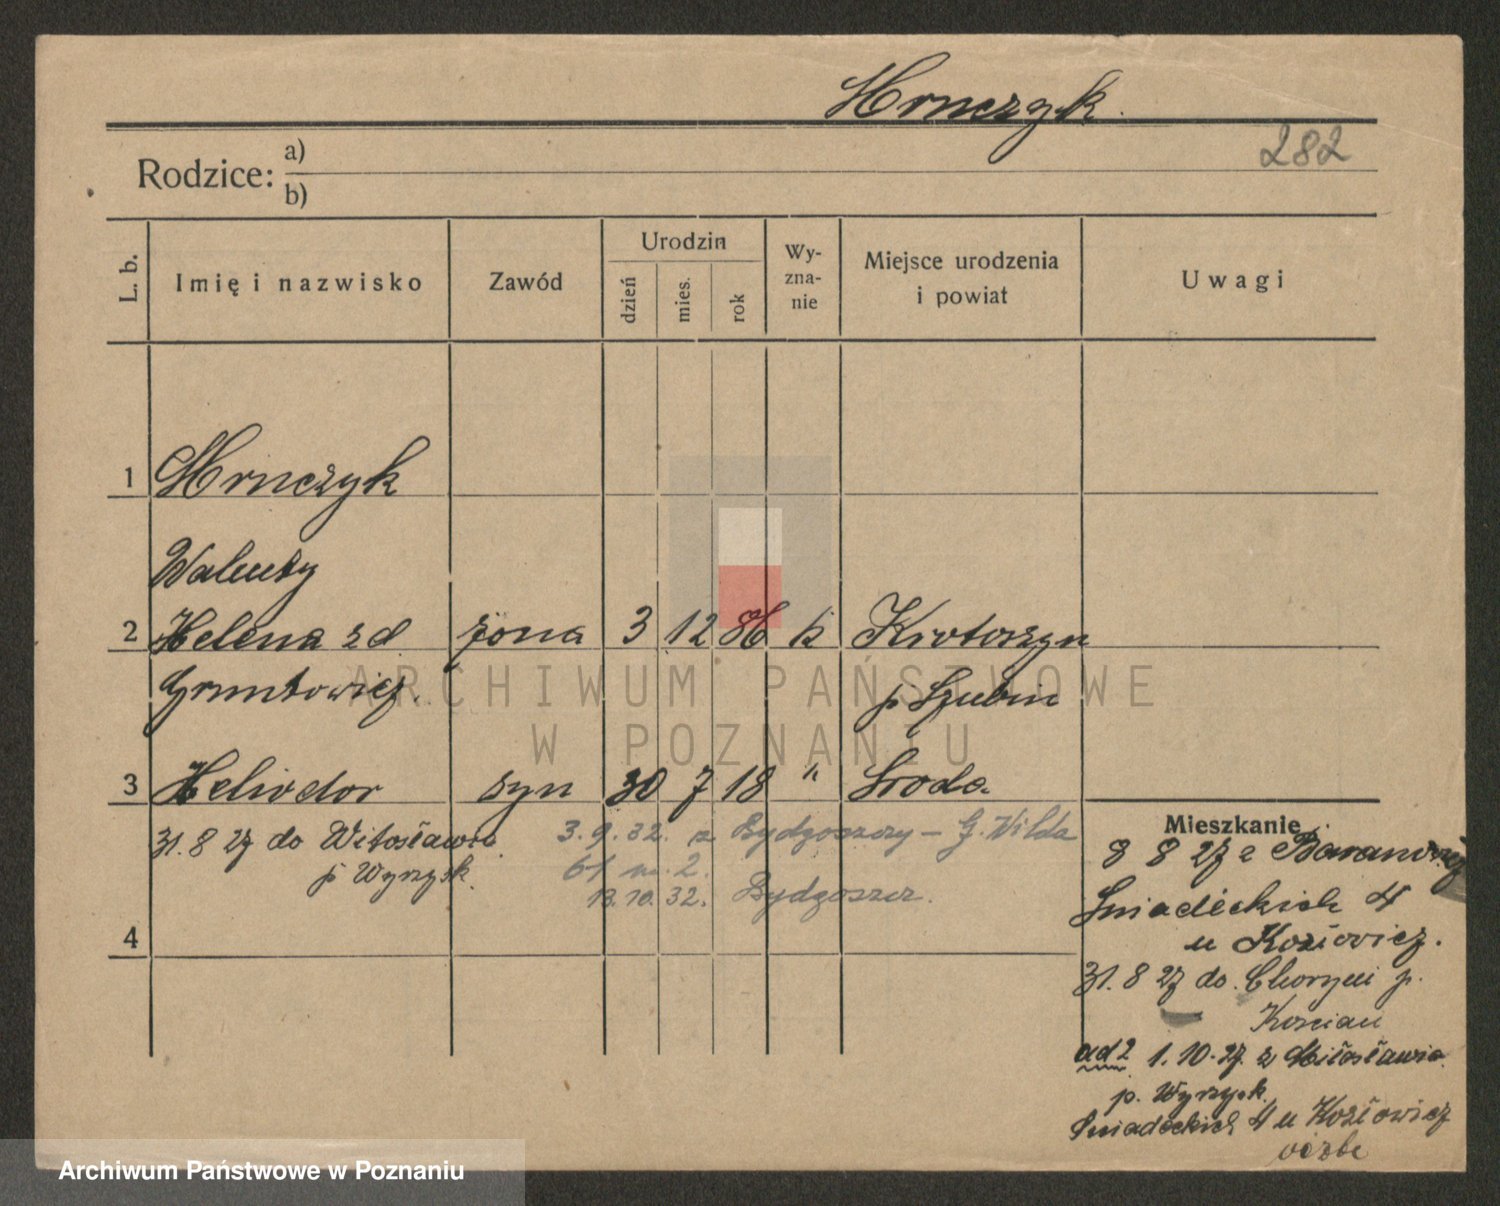 Hrnczyk.
282
Rodzice: a)
b)
L. b.
Imię i nazwisko
Zawód
Urodzin
dzień
mies.
rok
Wy-
zna-
nie
Miejsce urodzenia
i powiat
Uwagi
1 Hrnczyk
Walenty
2 Helena zd żona 3 12 86 k Krotoszyn
p Szubin
3 Heliodor syn 30 7 18 " Sroda
31.8 27 do Witosławia
p Wyrzysk.
3.9.32. z Bydgoszczy – G. Wilda
61 m. 2.
13.10.32. Bydgoszcz.
4
Mieszkanie
8 8 27 z
Sniadeckich 4
u Kozłowicz.
31.8 27 do Choryni p.
Koscian
ad 2 1.10.27. z
p. Wyrzysk.
Sniadeckich 4 u Kozłowicz
ARCHIWUM PAŃSTWOWE
W POZNANIU
Archiwum Państwowe w Poznaniu